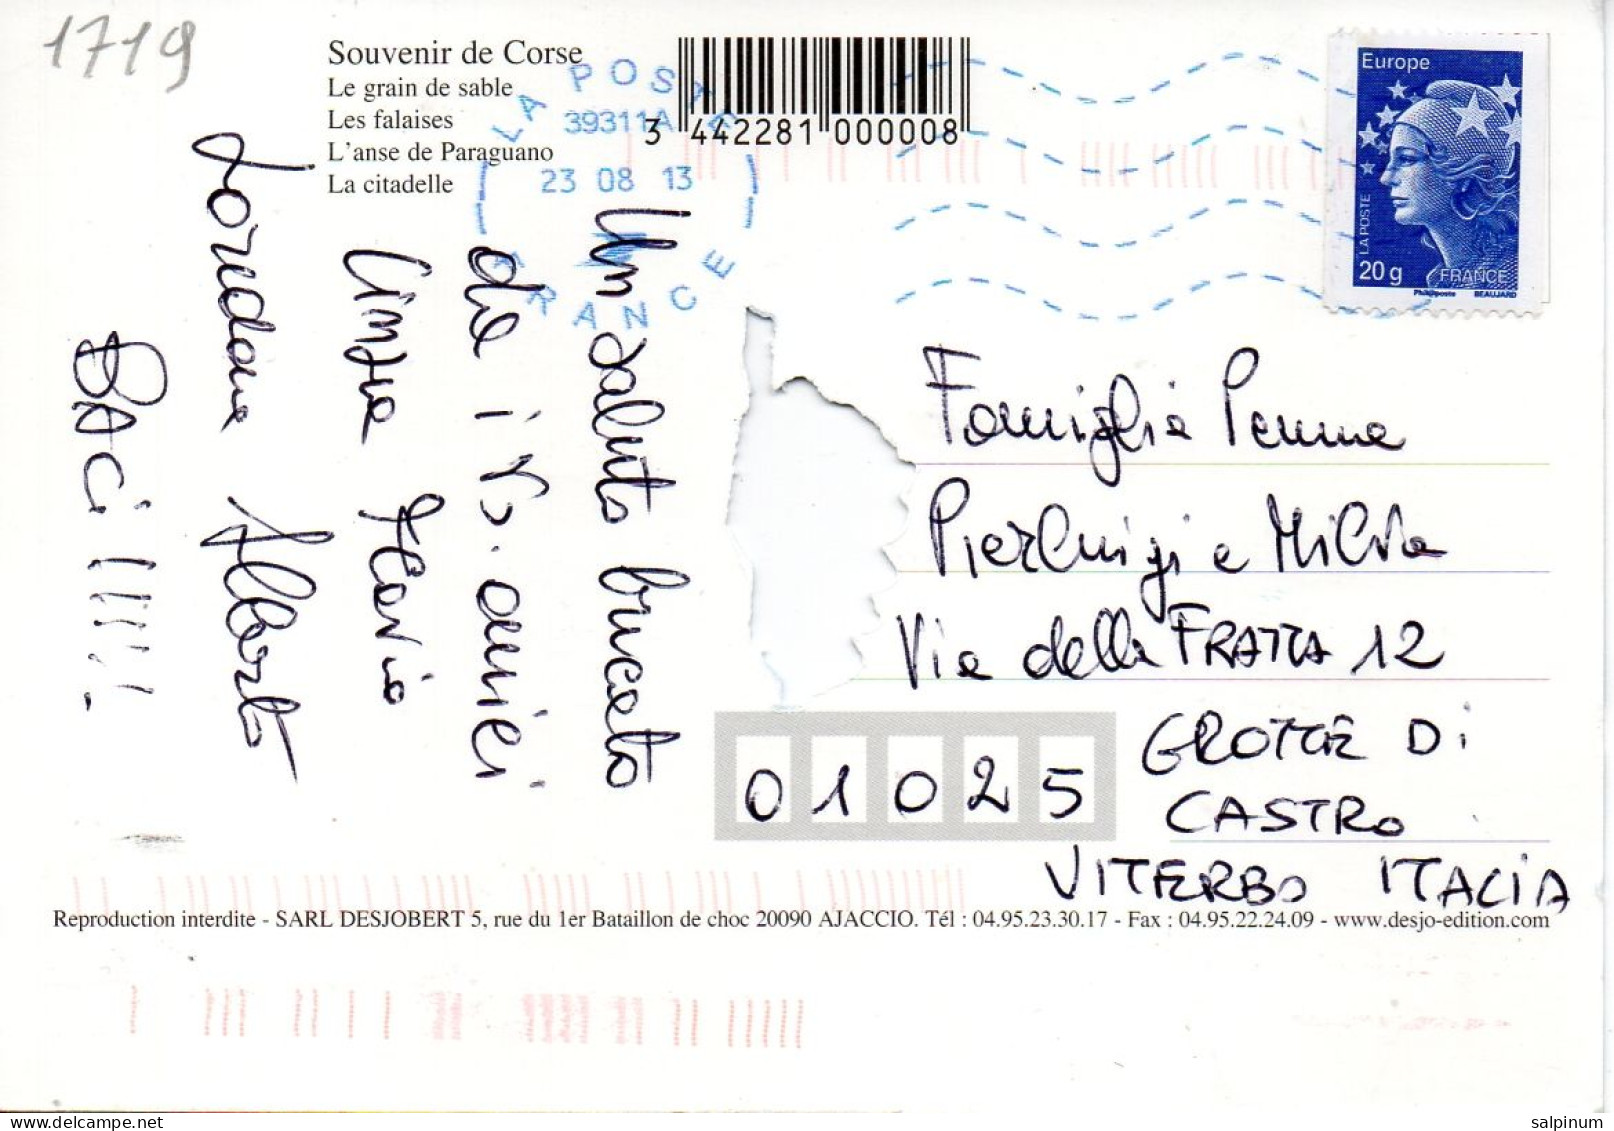 1719
Souvenir de Corse
Le grain de sable
Les falaises
L'anse de Paraguano
La citadelle
3 442281 000008
LA POSTE
39311A
23 08 13
FRANCE
Europe
LA POSTE
20 g
FRANCE
Phil@poste BEAUJARD
Un saluto bucato
da i vs. amici
Cinzia Flavio
Loredana Alberto
BACi !!!!!
Famiglia Penna
Pierluigi e Milvia
Via della FRATTA 12
01025
GROTTE Di
CASTRO
VITERBO ITALIA
Reproduction interdite - SARL DESJOBERT 5, rue du 1er Bataillon de choc 20090 AJACCIO. Tél : 04.95.23.30.17 - Fax : 04.95.22.24.09 - www.desjo-edition.com
salpinum